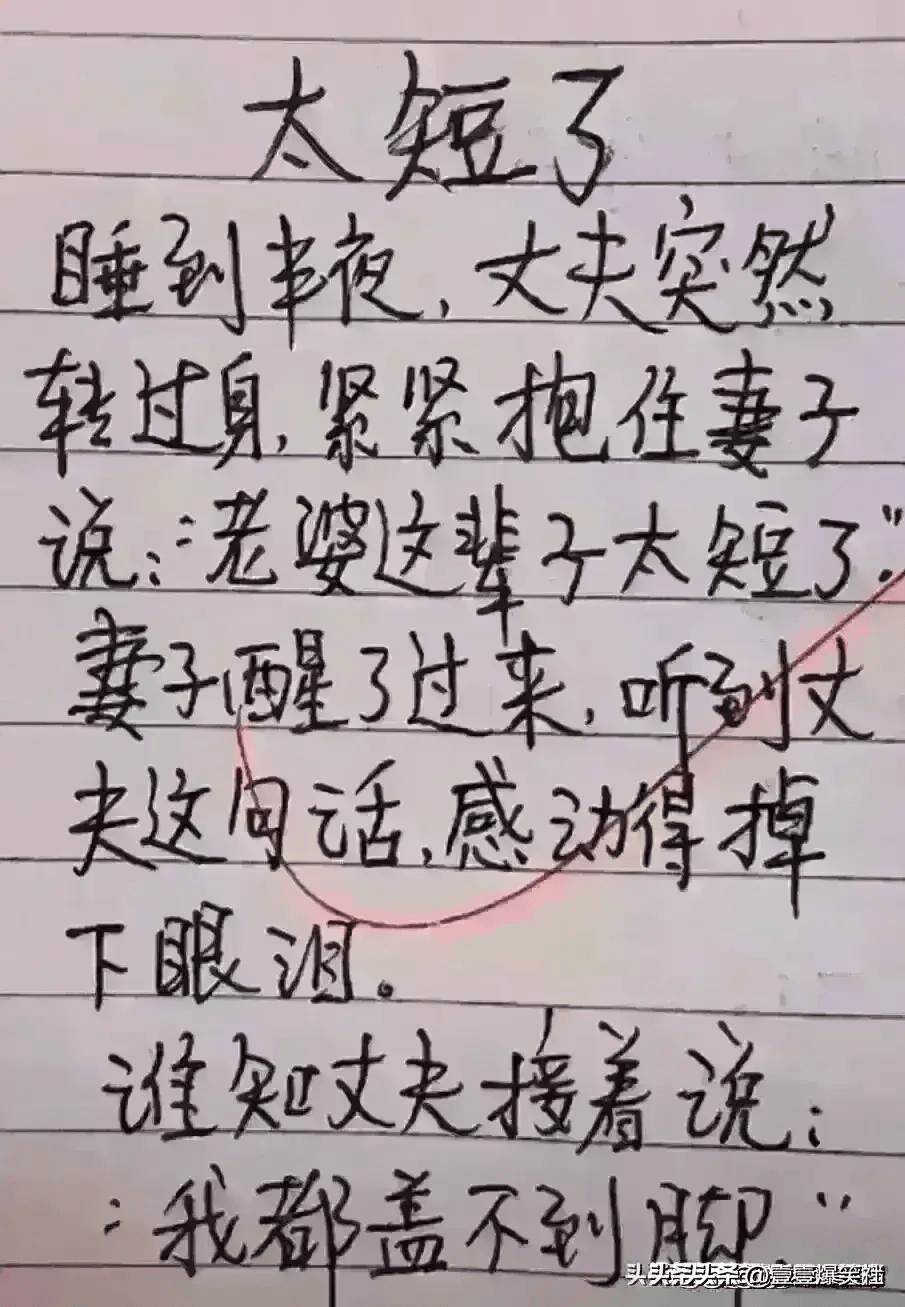 太短了
睡到半夜，丈夫突然
转过身，紧紧抱住妻子
说：“老婆这辈子太短了”。
妻子醒了过来，听到丈
夫这句话，感动得掉
下眼泪。
谁知丈夫接着说：
：我都盖不到脚”
头条 @壹壹爆笑社